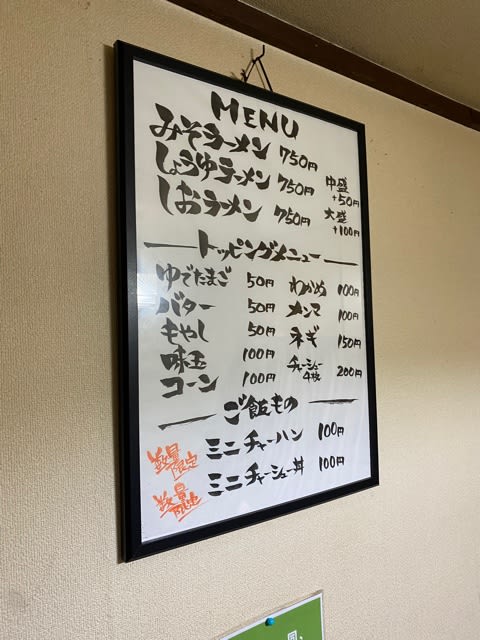 MENU
みそラーメン 750円
しょうゆラーメン 750円 中盛 +50円
しおラーメン 750円 大盛 +100円
トッピングメニュー
ゆでたまご 50円 わかめ 100円
バター 50円 メンマ 100円
もやし 50円 ネギ 150円
味玉 100円 チャーシュー 4枚 200円
コーン 100円
ご飯もの
数量限定 ミニチャーハン 100円
数量限定 ミニチャーシュー丼 100円